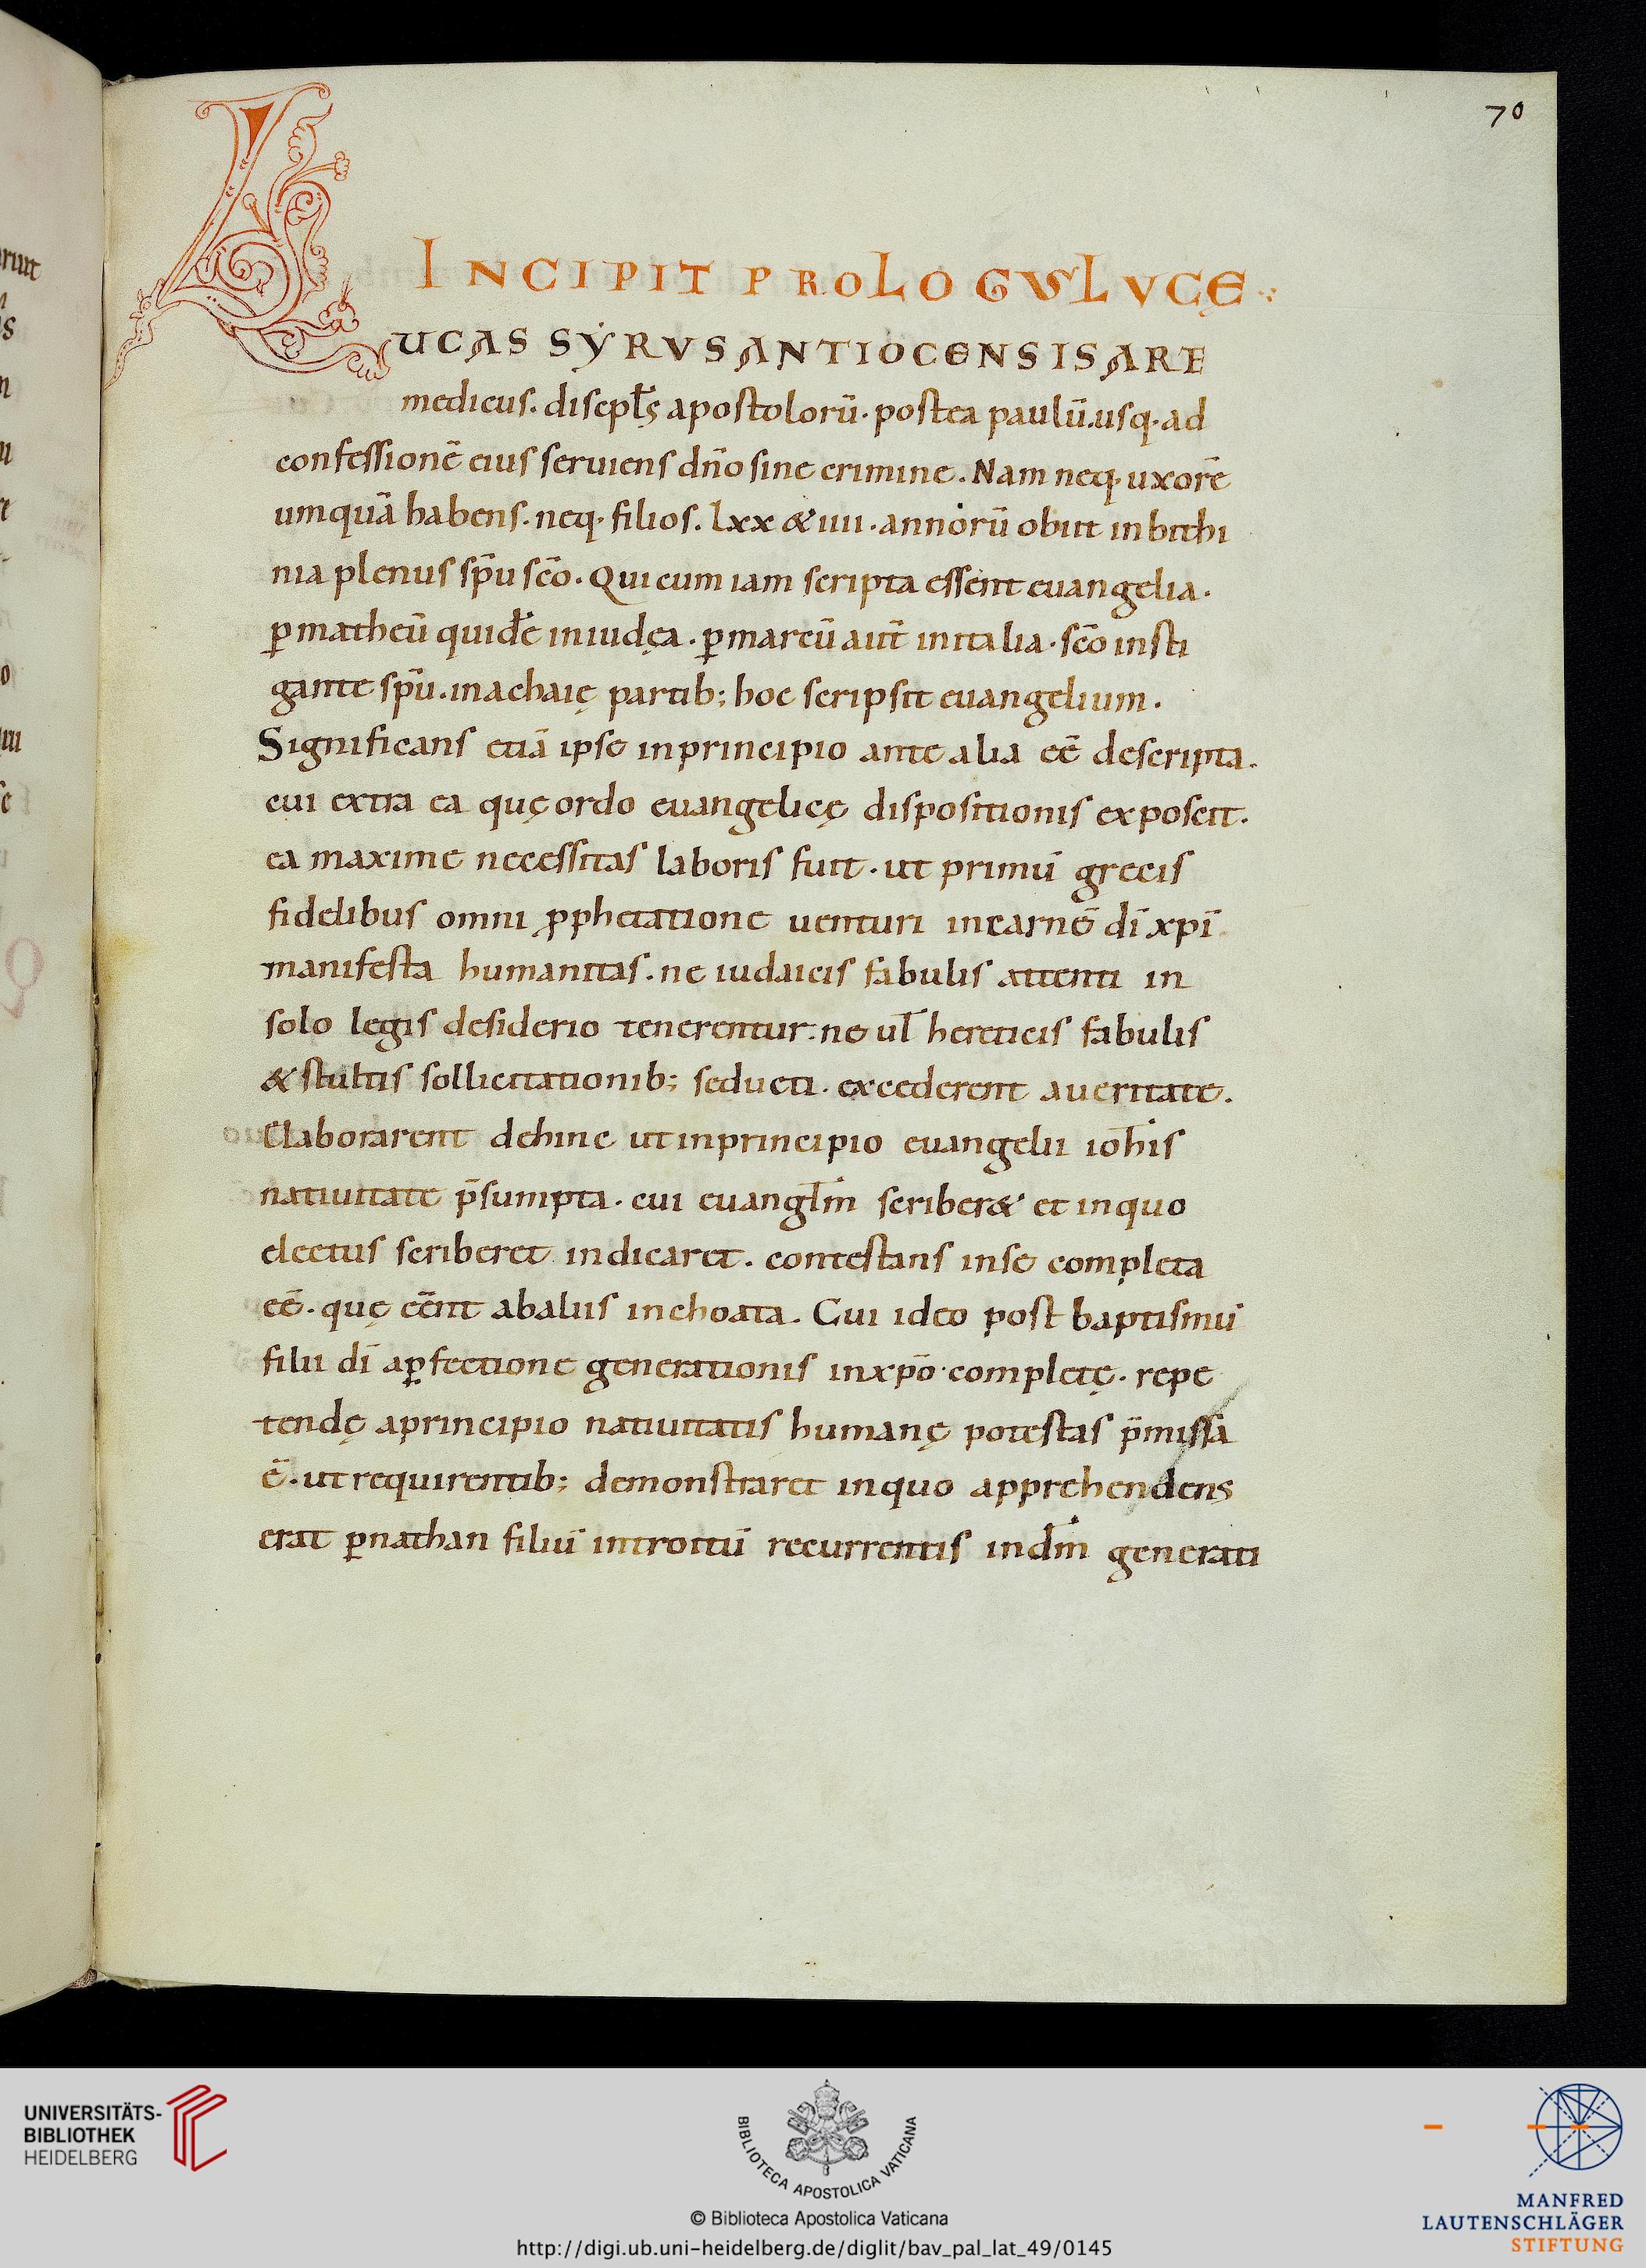 70
INCIPIT PROLOGUS LVCĘ
LUCAS SYRVS ANTIOCENSIS ARE
medicus. discipłs apostolorū. postea paulū. usq. ad
confessionē eius seruiens dn̄o sine crimine. Nam neq. uxorē
umquā habens. neq. filios. lxx & iiii. annorū obiit in bithi
nia plenus sp̄u sc̄o. Qui cum iam scripta essent euangelia.
ꝑ matheū quidē in iudęa. ꝑ marcū aut̄ in italia. sc̄o insti
gante sp̄u. in achaię partib; hoc scripsit euangelium.
Significans etiā ipse in principio ante alia eē descripta.
cui extra ea quę ordo euangelicę dispositionis exposcit.
ea maxime necessitas laboris fuit. ut primū grecis
fidelibus omni ꝓphetatione uenturi in carnē dī xp̄i
manifesta humanitas. ne iudaicis fabulis attenti in
solo legis desiderio tenerentur. ne ul̄ hereticis fabulis
& stultis sollicitationib; seducti. excederent a ueritate.
Elaborarent dehinc ut in principio euangelii ioh̄is
natiuitate p̄sumpta. cui euangl̄m scriber& et in quo
electus scriberet indicaret. contestans in se completa
eē. quę eēnt ab aliis inchoata. Cui ideo post baptismū
filii dī a ꝑfectione generationis in xp̄o completę. repe
tendę a principio natiuitatis humanę potestas p̄missa
ē. ut requirentib; demonstraret in quo apprehendens
erat ꝑ nathan filiū introitū recurrentis in dm̄ generati
UNIVERSITÄTS-
BIBLIOTHEK
HEIDELBERG
BIBLIOTECA APOSTOLICA VATICANA
© Biblioteca Apostolica Vaticana
http://digi.ub.uni-heidelberg.de/diglit/bav_pal_lat_49/0145
MANFRED
LAUTENSCHLÄGER
STIFTUNG